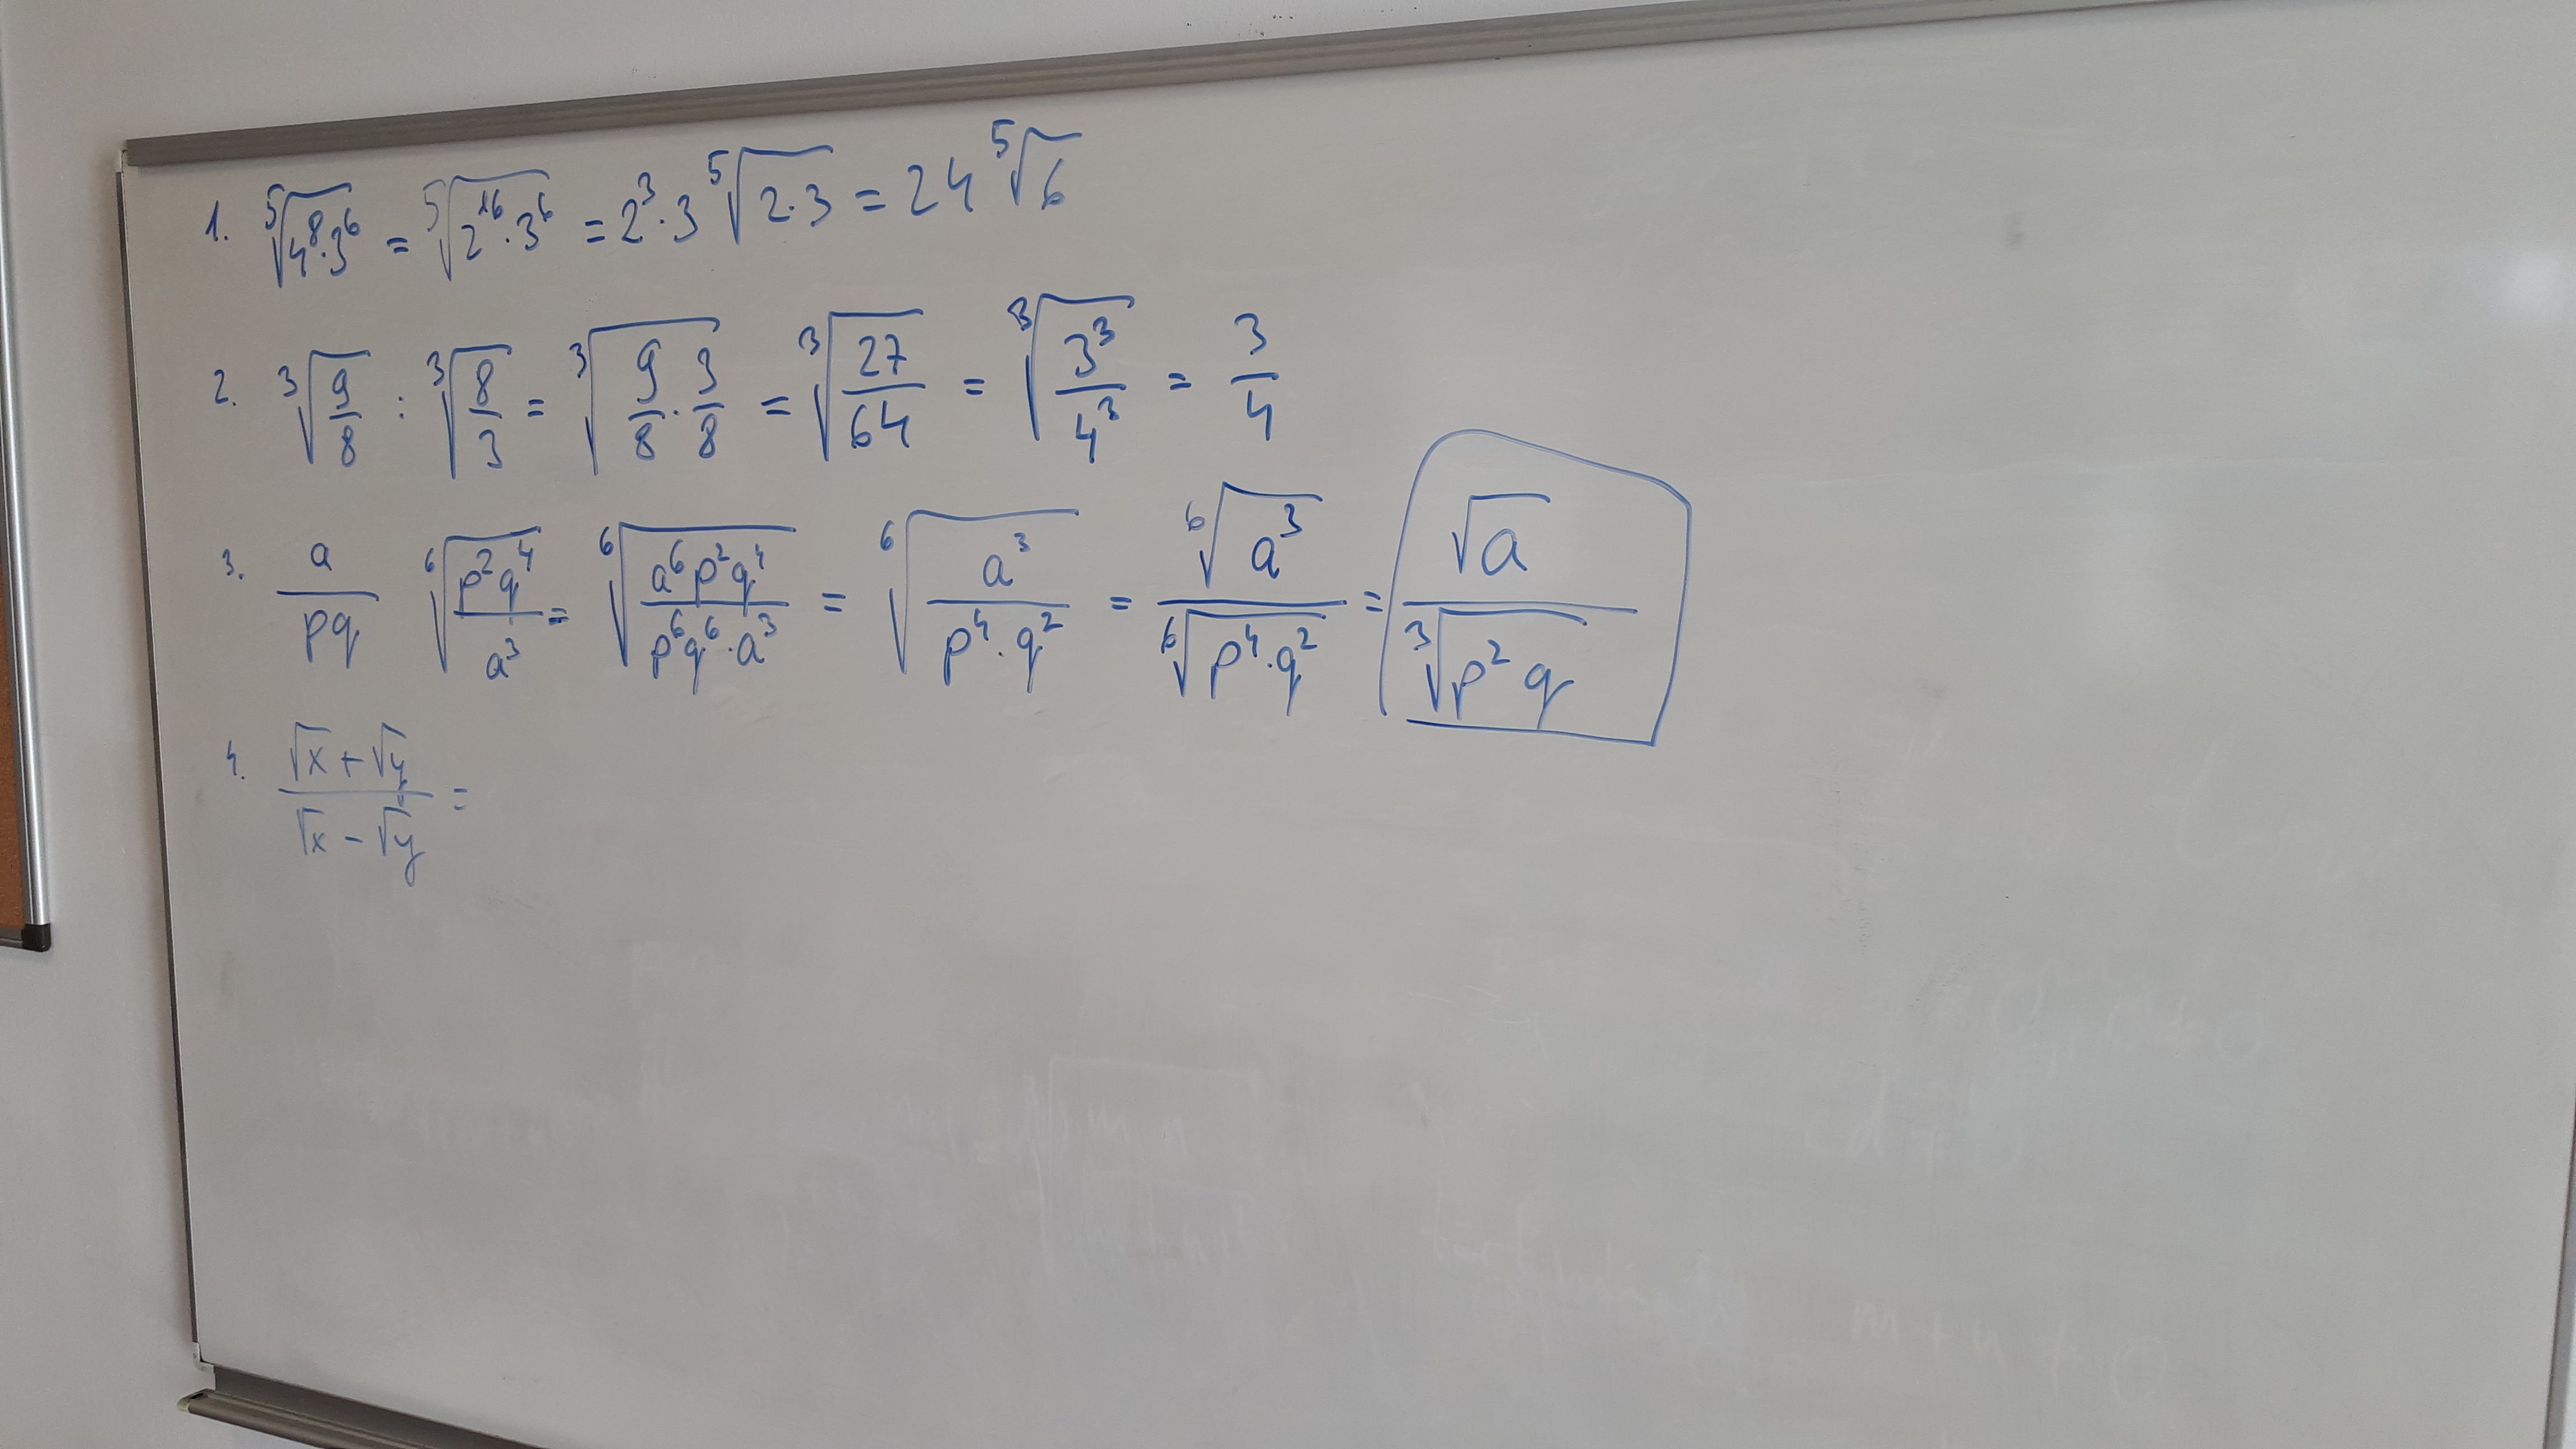 1. ⁵√(4⁸·3⁶) = ⁵√(2¹⁶·3⁶) = 2³·3 ⁵√(2·3) = 24 ⁵√6
2. ³√(9/8) : ³√(8/3) = ³√(9/8 · 3/8) = ³√(27/64) = ³√(3³/4³) = 3/4
3. a/(pq) ⁶√(p²q⁴/a³) = ⁶√(a⁶p²q⁴/(p⁶q⁶·a³)) = ⁶√(a³/(p⁴·q²)) = ⁶√(a³)/⁶√(p⁴·q²) = √a/³√(p²q)
4. (√x + √y)/(√x − √y) =